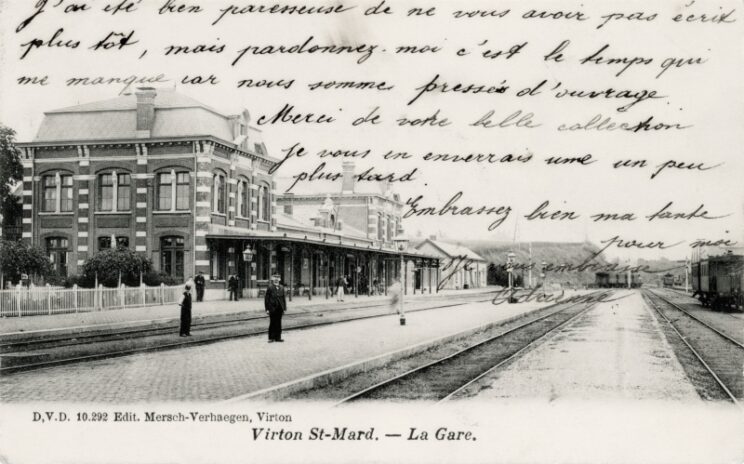 J'ai été bien paresseuse de ne vous avoir pas écrit
plus tôt, mais pardonnez-moi c'est le temps qui
me manque car nous somme pressés d'ouvrage.
Merci de votre belle collection
je vous en enverrais une un peu
plus tard.
Embrassez bien ma tante
pour moi
Je vous embrasse
D.V.D. 10.292 Edit. Mersch-Verhaegen, Virton
Virton St-Mard. — La Gare.